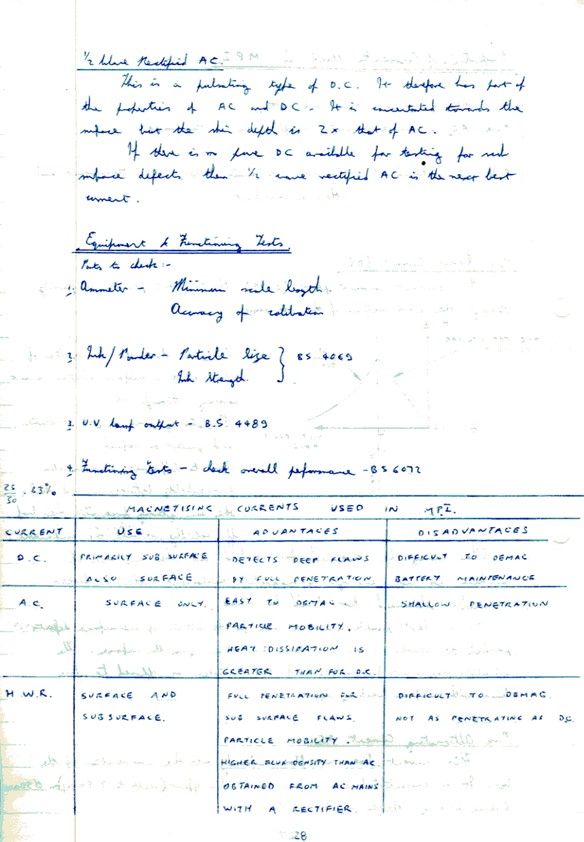 ½ Wave Rectified AC.
This is a pulsating type of D.C. It therefore has part of
the properties of AC and DC - It is concentrated towards the
surface but the skin depth is 2x that of AC.
If there is no pure DC available for testing for sub
surface defects then ½ wave rectified AC is the next best
current.
Equipment & Functioning Tests.
Pnts to check :-
1. Ammeter - Minimum scale length.
Accuracy of calibration
2. Ink/Powder - Particle Size } BS 4069
Ink Strength.
3. U.V. lamp output - B.S. 4489
4. Functioning Tests - check overall performance - BS 6072
25/30 . 83%
MAGNETISING CURRENTS USED IN MPI.
CURRENT USE. ADVANTAGES DISADVANTAGES
D.C. PRIMARILY SUB SURFACE DETECTS DEEP FLAWS DIFFICULT TO DEMAG
ALSO SURFACE BY FULL PENETRATION BATTERY MAINTENANCE
A.C. SURFACE ONLY. EASY TO DEMAG. SHALLOW PENETRATION
PARTICLE MOBILITY.
HEAT DISSIPATION IS
GREATER THAN FOR D.C.
H.W.R. SURFACE AND FULL PENETRATION FOR DIFFICULT TO DEMAG.
SUBSURFACE. SUB SURFACE FLAWS. NOT AS PENETRATING AS DC.
PARTICLE MOBILITY.
HIGHER FLUX DENSITY THAN AC
OBTAINED FROM AC MAINS
WITH A RECTIFIER.
28